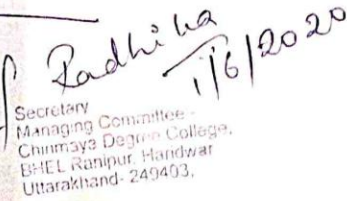 Radhika
1/6/2020
Secretary
Managing Committee -
Chinmaya Degree College,
BHEL Ranipur, Haridwar
Uttarakhand- 249403,